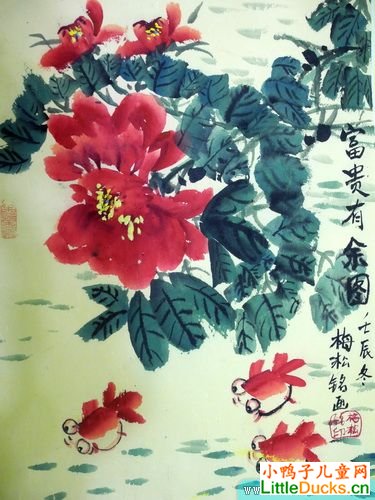 富贵有余图
壬辰冬
梅松铭画
小鸭子儿童网
LittleDucks.cn